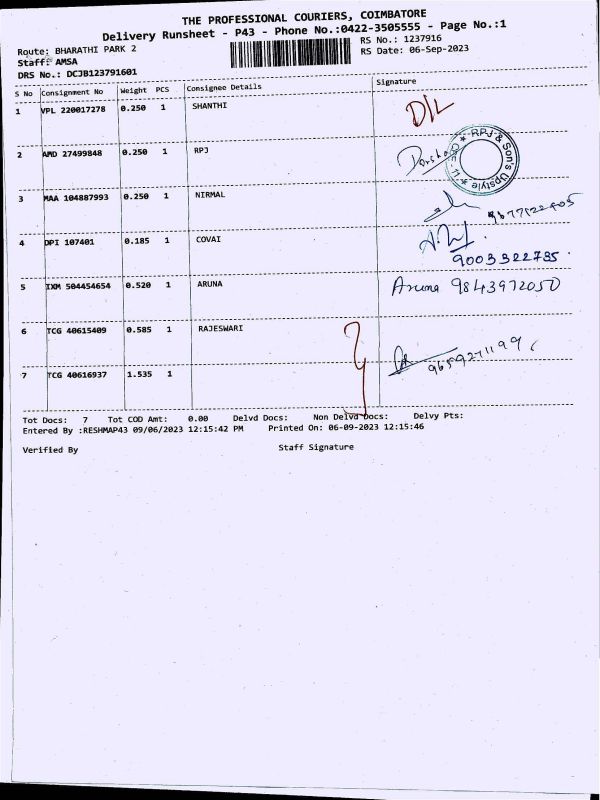 THE PROFESSIONAL COURIERS, COIMBATORE
Delivery Runsheet - P43 - Phone No.:0422-3505555 - Page No.:1
Route: BHARATHI PARK 2
RS No.: 1237916
Staff: AMSA
RS Date: 06-Sep-2023
DRS No.: DCJB123791601
S No Consignment No Weight PCS Consignee Details Signature
1 VPL 220017278 0.250 1 SHANTHI D/L
2 AMD 27499848 0.250 1 RPJ
RPJ & Son's Upstyle
CBE - 11.
3 MAA 104887993 0.250 1 NIRMAL
4 DPI 107401 0.185 1 COVAI
9003322785.
5 IXM 504454654 0.520 1 ARUNA Aruna 9843972050
6 TCG 40615409 0.585 1 RAJESWARI
9659271199
7 TCG 40616937 1.535 1
Tot Docs: 7 Tot COD Amt: 0.00 Delvd Docs: Non Delvd Docs: Delvy Pts:
Entered By :RESHMAP43 09/06/2023 12:15:42 PM Printed On: 06-09-2023 12:15:46
Verified By Staff Signature